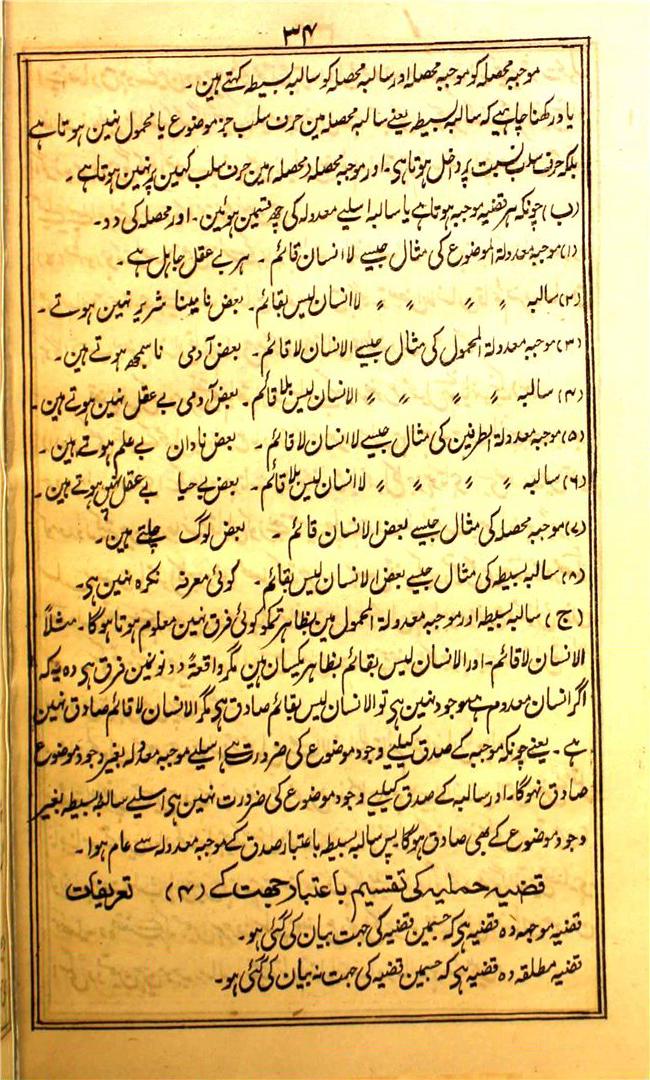 ۳۴
موجبہ محصلہ کو موجبہ محصلہ اور سالبہ محصلہ کو سالبہ بسیطہ کہتے ہین ۔
یاد رکھنا چاہیے کہ سالبہ بسیطہ یعنے سالبہ محصلہ مین حرف سلب جز موضوع یا محمول نہین ہوتا ہے
بلکہ حرف سلب نسبت پر داخل ہوتا ہی ۔ اور موجبہ محصلہ مین حرف سلب کہین پر نہین ہوتا ہے ۔
(ب) چونکہ ہر قضیہ موجبہ ہوتا ہے یا سالبہ اسلیے معدولہ کی چھ قسمین ہوئین ۔ اور محصلہ کی دو ۔
(۱) موجبہ معدولۃ الموضوع کی مثال جیسے لا انسان قائم ۔ ہر بے عقل جاہل ہے ۔
(۲) سالبہ 〃 〃 〃 〃 لا انسان لیس بقائم ۔ بعض نا بینا شریر نہین ہوتے ۔
(۳) موجبہ معدولۃ المحمول کی مثال جیسے الانسان لا قائم ۔ بعض آدمی نا سمجھ ہوتے ہین ۔
(۴) سالبہ 〃 〃 〃 〃 الانسان لیس بلا قائم ۔ بعض آدمی بے عقل نہین ہوتے ہین ۔
(۵) موجبہ معدولۃ الطرفین کی مثال جیسے لا انسان لا قائم ۔ بعض نادان بے علم ہوتے ہین ۔
(۶) سالبہ 〃 〃 〃 〃 لا انسان لیس بلا قائم ۔ بعض بے حیا بے عقل نہین ہوتے ہین ۔
(۷) موجبہ محصلہ کی مثال جیسے بعض الانسان قائم ۔ بعض لوگ چلتے ہین ۔
(۸) سالبہ بسیطہ کی مثال جیسے بعض الانسان لیس بقائم ۔ کوئی معرفہ نکرہ نہین ہی ۔
(ج) سالبہ بسیطہ اور موجبہ معدولۃ المحمول مین بظاہر تمکو کوئی فرق نہین معلوم ہوتا ہوگا ۔ مثلاً
الانسان لا قائم ۔ اور الانسان لیس بقائم بظاہر یکسان ہین مگر واقعۃً دونونمین فرق ہی وہ یہ کہ
اگر انسان معدوم ہے موجود نہین ہی تو الانسان لیس بقائم صادق ہی مگر الانسان لا قائم صادق نہین
ہے ۔ یعنے چونکہ موجبہ کے صدق کیلیے وجود موضوع کی ضرورت ہے اسلیے موجبہ معدولہ بغیر وجود موضوع
صادق نہوگا ۔ اور سالبہ کے صدق کیلیے وجود موضوع کی ضرورت نہین ہی اسلیے سالبہ بسیطہ بغیر
وجود موضوع کے بھی صادق ہوگا پس سالبہ بسیطہ باعتبار صدق کے موجبہ معدولہ سے عام ہوا ۔
قضیہ حملیہ کی تقسیم باعتبار جہت کے (۴) تعریفات
قضیہ موجہہ وہ قضیہ ہی کہ جسمین قضیہ کی جہت بیان کی گئی ہو ۔
قضیہ مطلقہ وہ قضیہ ہی کہ جسمین قضیہ کی جہت نہ بیان کی گئی ہو ۔